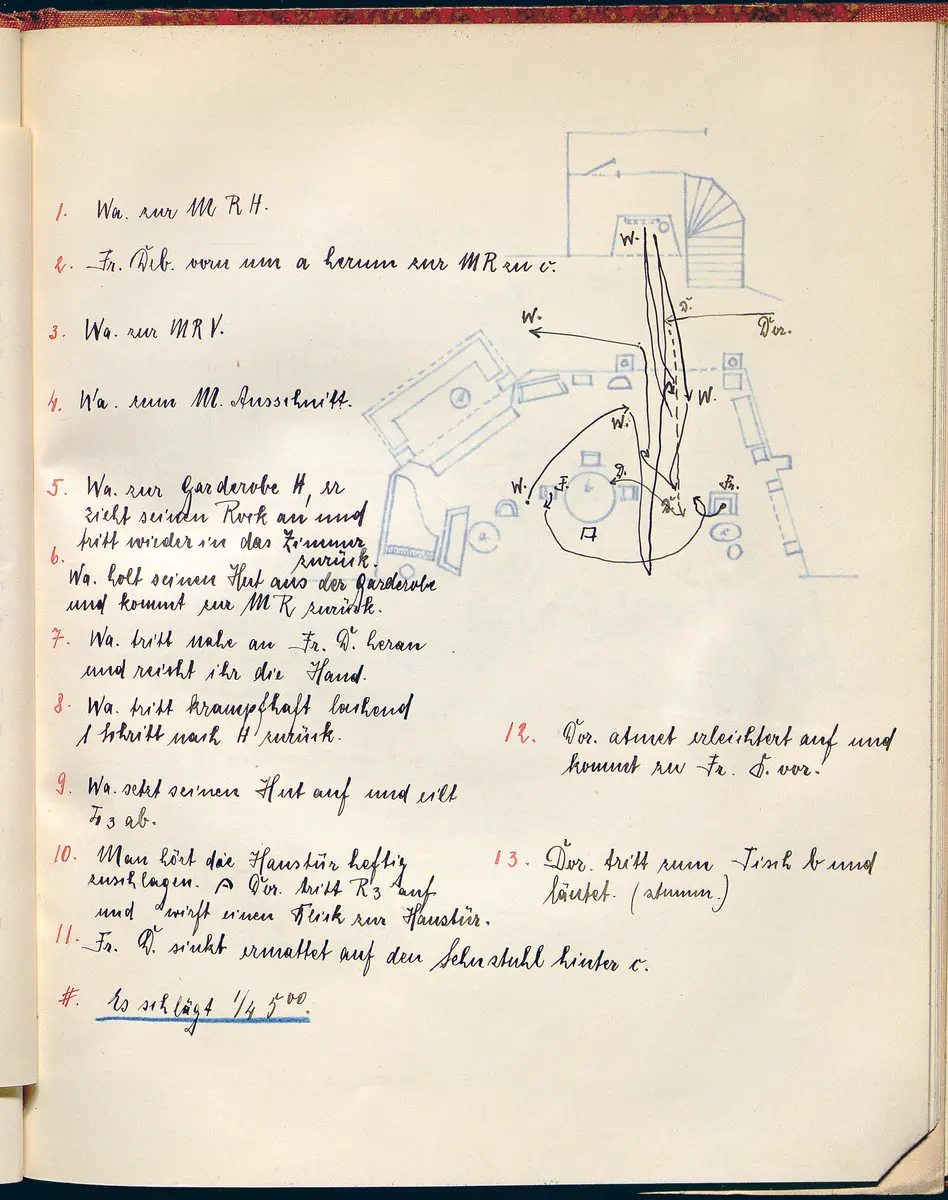 1. Wa. zur M R H.
2. Fr. Deb. vorn um a herum zur MR zu c.
3. Wa. zur MRV.
4. Wa. zum M. Ausschnitt.
5. Wa. zur Garderobe H, er
zieht seinen Rock an und
tritt wieder in das Zimmer
zurück.
6. Wa. holt seinen Hut aus der Garderobe
und kommt zur MR zurück.
7. Wa. tritt nahe an Fr. D. heran
und reicht ihr die Hand.
8. Wa. tritt krampfhaft lachend
1 Schritt nach H zurück.
9. Wa. setzt seinen Hut auf und eilt
3 ab.
10. Man hört die Haustür heftig
zuschlagen. Dor. tritt R3 auf
und wirft einen Blick zur Haustür.
11. Fr. D. sinkt ermattet auf den Lehnstuhl hinter c.
#. Es schlägt 1/4 5 00.
12. Dor. atmet erleichtert auf und
kommt zu Fr. D. vor.
13. Dor. tritt zum Tisch b und
läutet. (stumm.)
W.
D.
Dor.
W.
W.
W.
W.
F.
D.
Fr.
D.